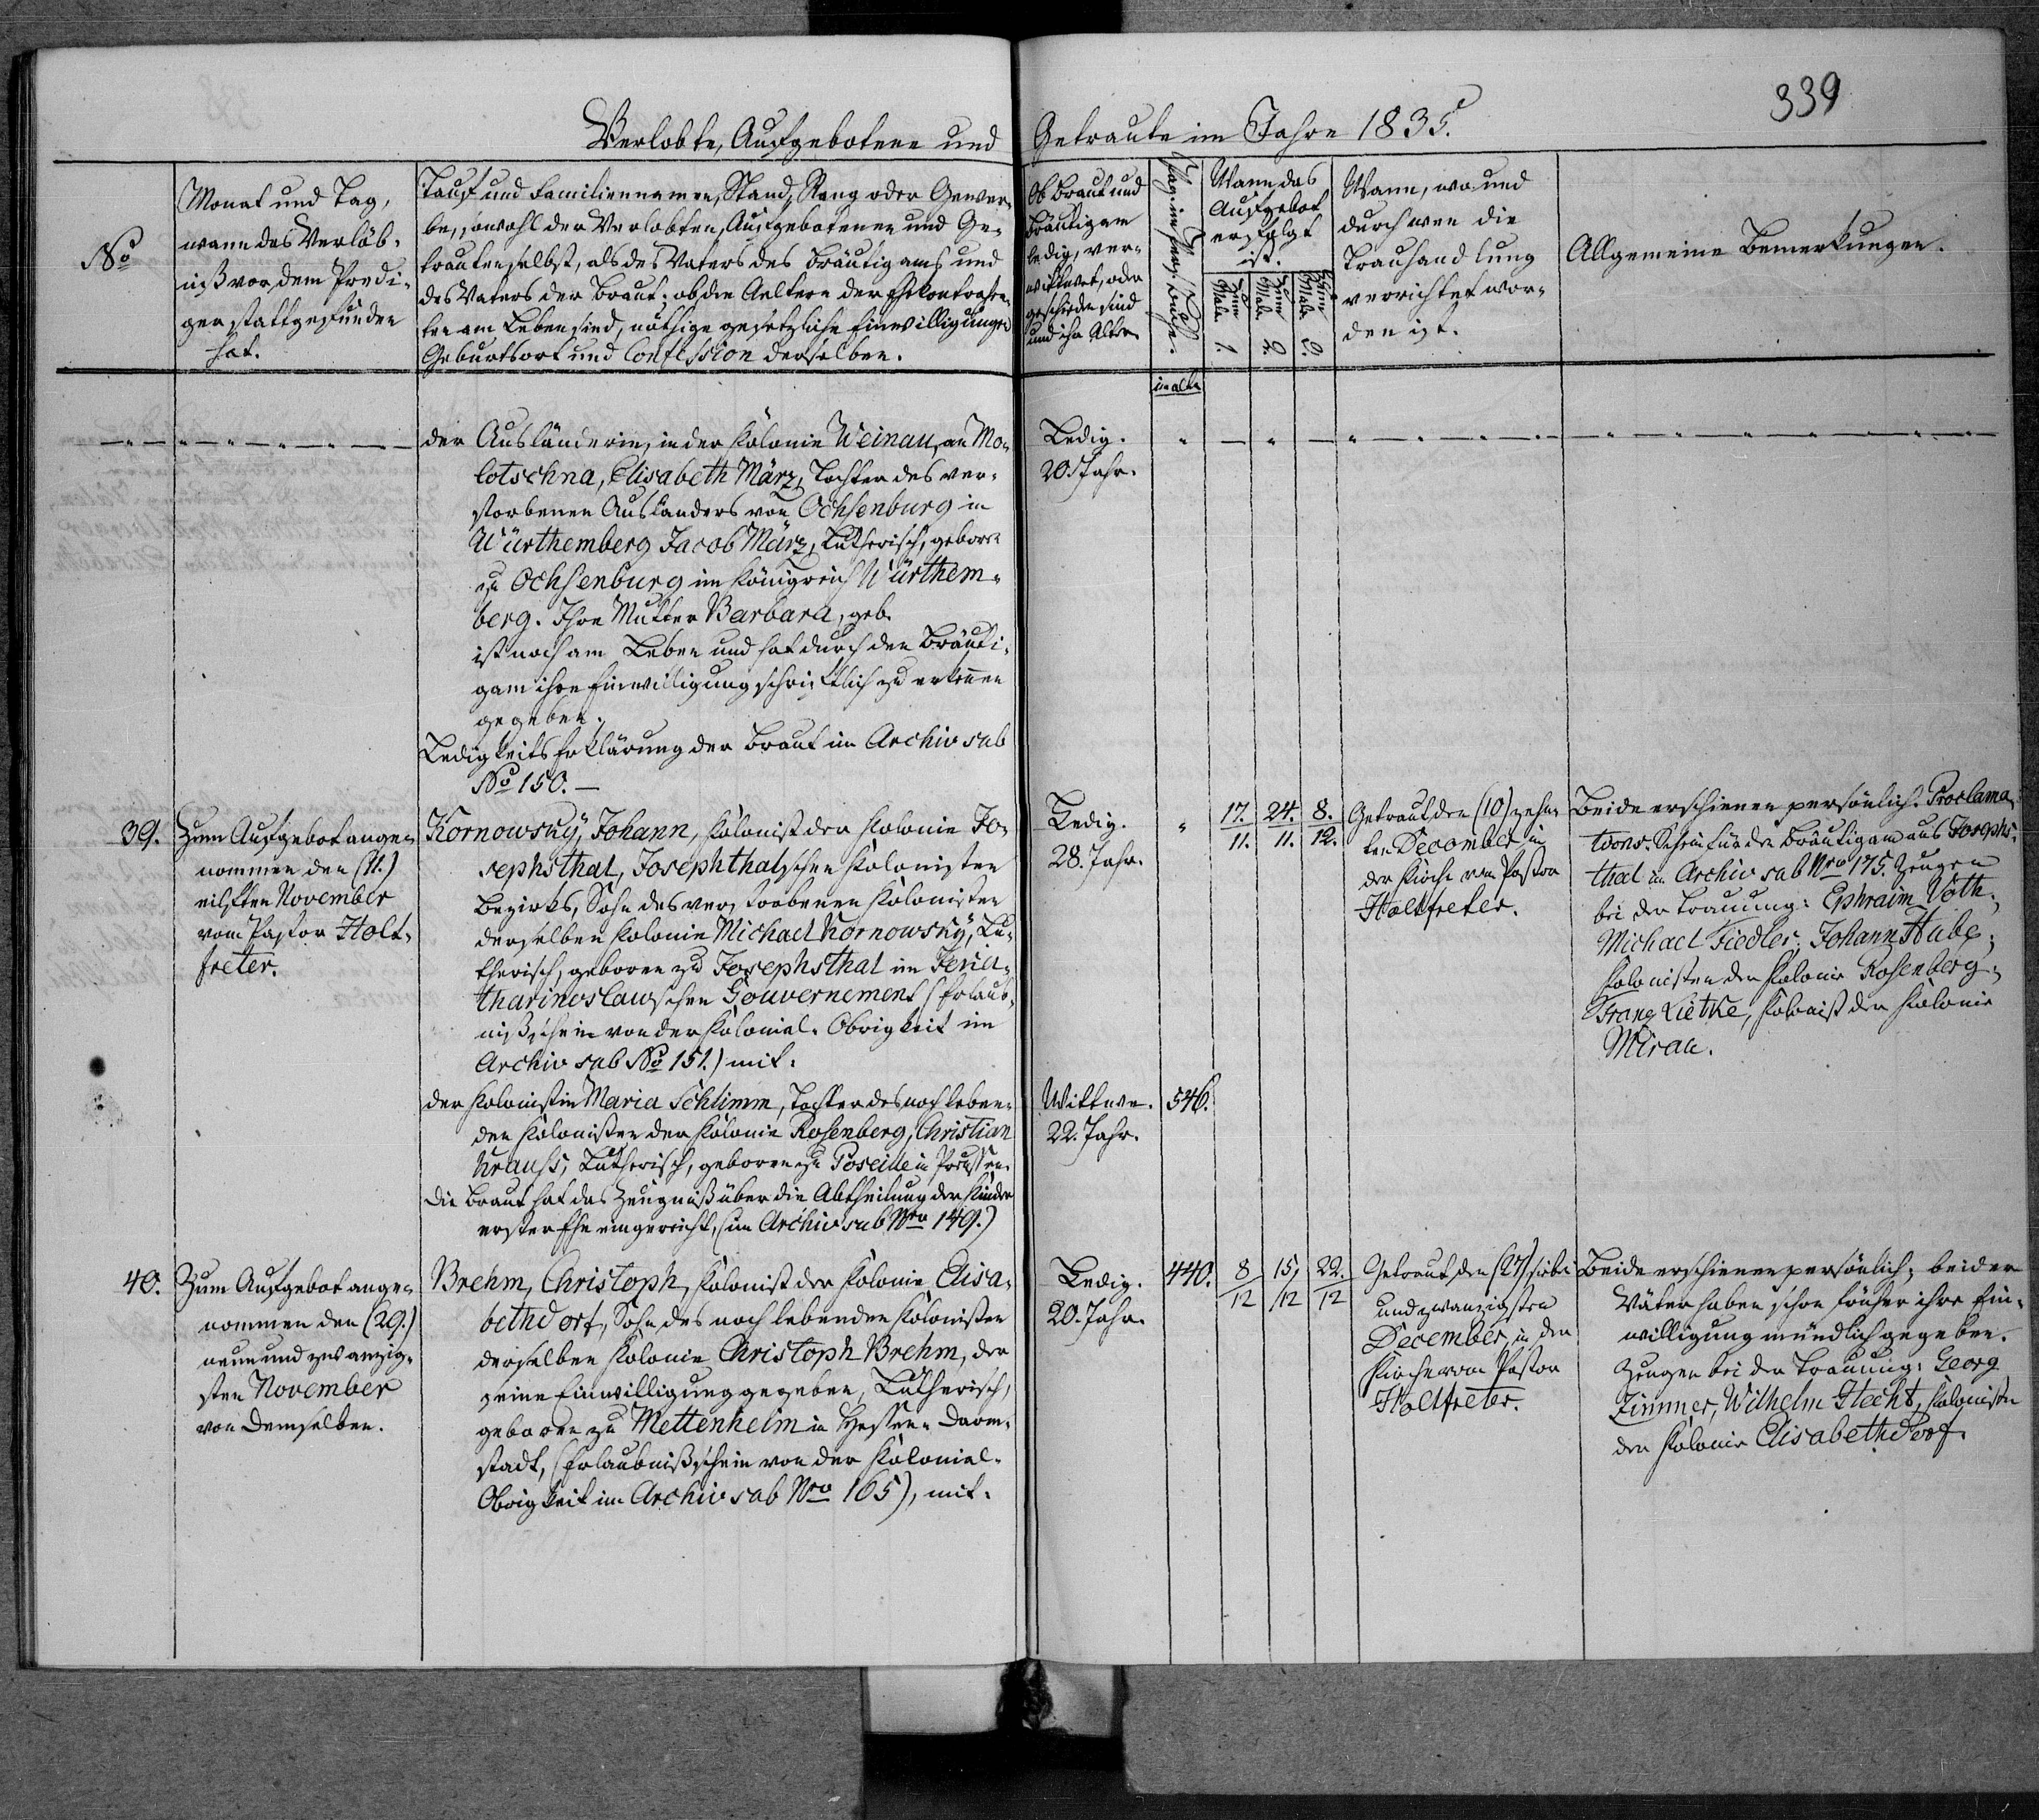 339
Verlobte, Aufgebotene und Getraute im Jahre 1835.
No
Monat und Tag,
wann das Verlöb-
niß vor dem Predi-
ger stattgefunden
hat.
Tauf und Familiennamen, Stand, Rang oder Gewer-
be, sowohl der Verlobten, Aufgebotenen und Ge-
trauten selbst, als des Vaters des Bräutigams und
des Vaters der Braut; ob die Aeltern der Ehekontrahen-
ten am Leben sind, nöthige gesetzliche Einwilligungen
Geburtsort und Confession derselben.
Ob Braut und
Bräutigam
ledig, ver-
wittwet, oder
geschieden sind
und ihr Alter
Wann das
Aufgebot
erfolgt
ist.
Zum 1. Male
Zum 2. Male
Zum 3. Male
Wann, wo und
durch wen die
Trauhandlung
verrichtet wor-
den ist.
Allgemeine Bemerkungen.
der Ausländerin, in der Kolonie Weinau, an Mo-
lotschna, Elisabeth März, Tochter des ver-
storbenen Ausländers von Ochsenburg in
Würthemberg Jacob März, Lutherisch, geboren
zu Ochsenburg im Königreich Würthem-
berg. Ihre Mutter Barbara, geb.
ist noch am Leben und hat durch den Bräuti-
gam ihre Einwilligung schriftlich zu erkennen
gegeben.
Ledigkeits Erklärung der Braut im Archiv sub
No 150. —
Ledig.
20 Jahr.
39.
Zum Aufgebot ange-
nommen den (11.)
eilften November
vom Pastor Holt-
freter.
Kornowsky, Johann, Kolonist der Kolonie Jo-
sephsthal, Josephthalschen Kolonisten
Bezirks, Sohn des verstorbenen Kolonisten
derselben Kolonie Michael Kornowsky, Lu-
therisch, geboren zu Josephsthal im Jeka-
tharinoslawschen Gouvernement (Erlaub-
nißschein von der Kolonial-Obrigkeit im
Archiv sub No 151.) mit:
der Kolonistin Maria Schlimm, Tochter des noch leben-
den Kolonisten der Kolonie Rosenberg, Christian
Krauss, Lutherisch, geboren zu Poseile in Preussen.
Die Braut hat das Zeugniß über die Abtheilung der Kinder
erster Ehe eingereicht, (im Archiv sub Nro 149.)
Ledig.
28. Jahr.
17. 24. 8.
11. 11. 12.
Getraut den (10) zehn-
ten December in
der Kirche vom Pastor
Holtfreter.
Beide erschienen persönlich. Proclama-
tions-Schein für den Bräutigam aus Josephs-
thal im Archiv sub Nro 175. Zeugen
bei der Trauung: Ephraim Voth;
Michael Fiedler; Johann Hube;
Kolonisten der Kolonie Rosenberg;
Franz Lietke, Kolonist der Kolonie
Mirau.
Wittwe.
22. Jahr.
546.
40.
Zum Aufgebot ange-
nommen den (29.)
neun und zwanzig-
sten November
von demselben.
Brehm, Christoph, Kolonist der Kolonie Elisa-
bethdorf, Sohn des noch lebenden Kolonisten
derselben Kolonie Christoph Brehm, der
seine Einwilligung gegeben, Lutherisch,
geboren zu Mettenheim in Hessen-Darm-
stadt, (Erlaubnißschein von der Kolonial-
Obrigkeit im Archiv sub Nro 165), mit:
Ledig.
20. Jahr.
440.
8 15, 22.
12 12 12
Getraut den (27) sieben
und zwanzigsten
December, in der
Kirche vom Pastor
Holtfreter.
Beide erschienen persönlich; beider
Väter haben schon früher ihre Ein-
willigung mündlich gegeben.
Zeugen bei der Trauung: Georg
Zimmer, Wilhelm Hecht, Kolonisten
der Kolonie Elisabethdorf.